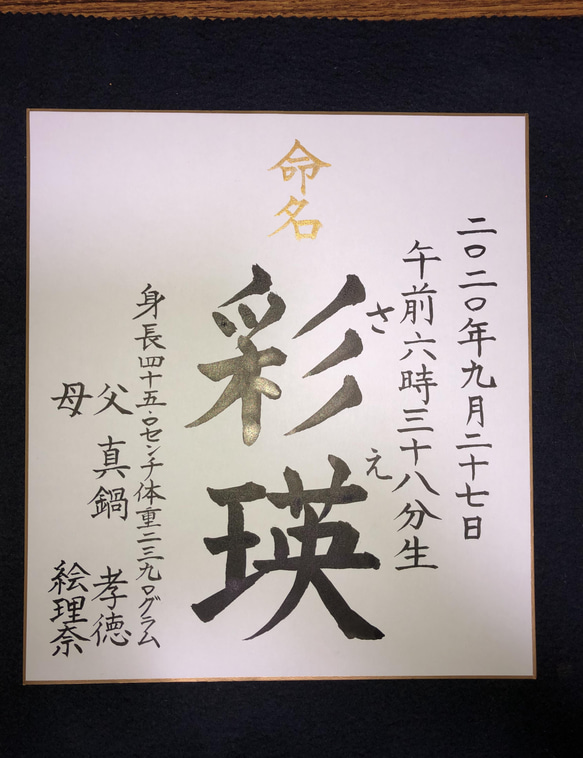 二〇二〇年九月二十七日
午前六時三十八分生
命名
彩瑛
さえ
身長四十五.〇センチ体重二三九〇グラム
父 真鍋 孝徳
母 絵理奈